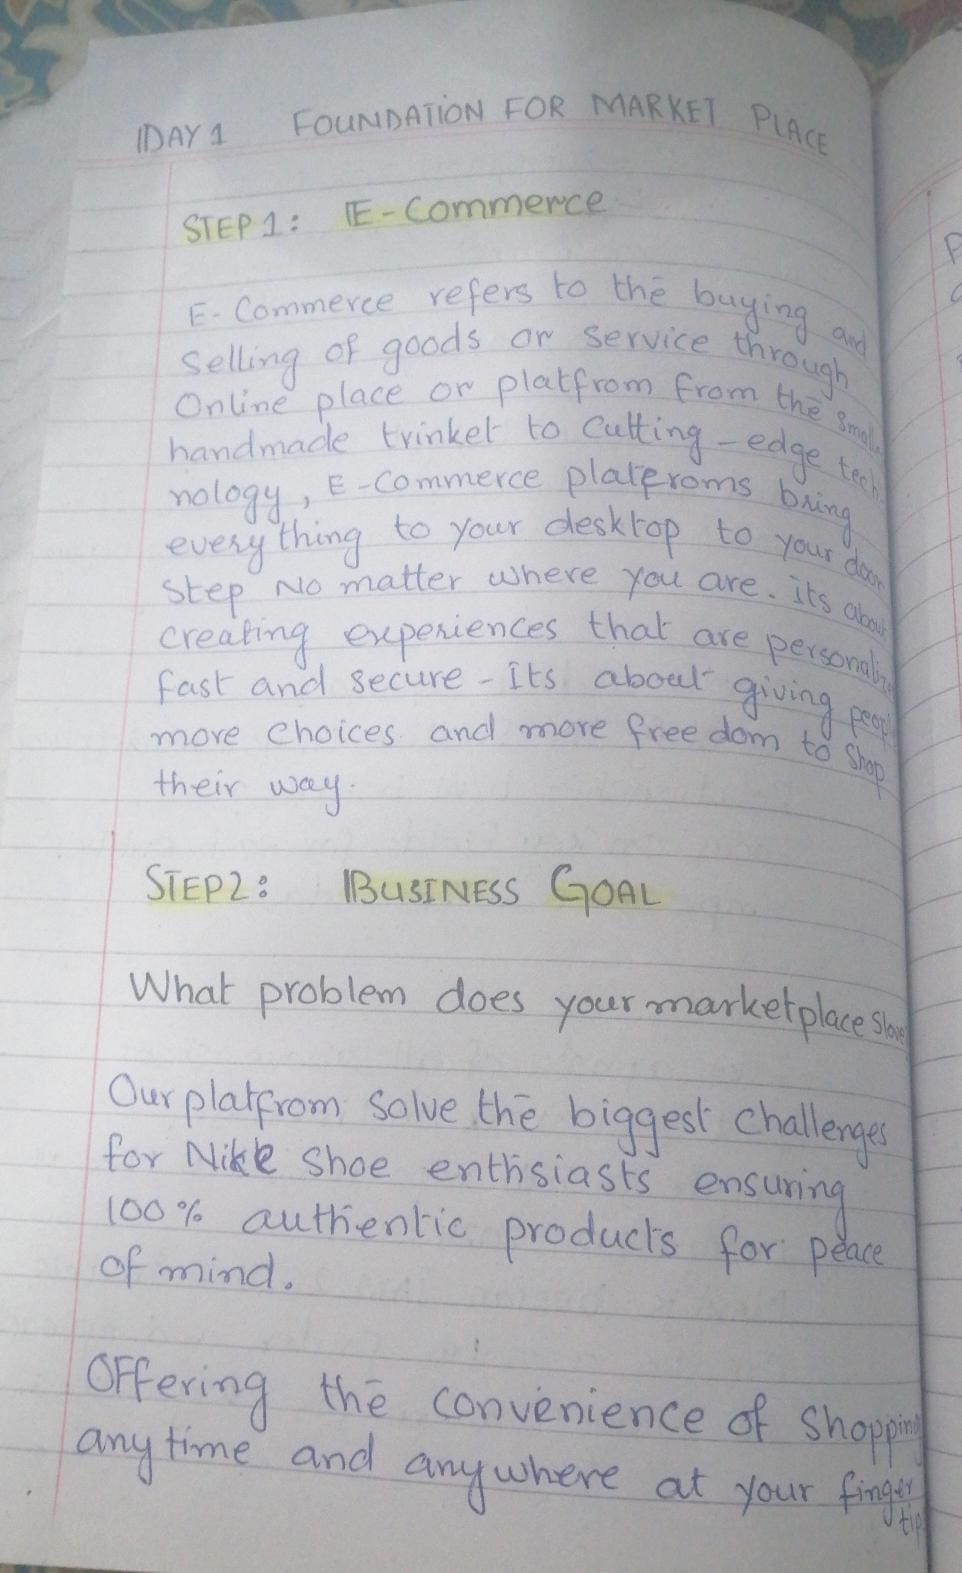 DAY 1 FOUNDATION FOR MARKET PLACE
STEP 1: E-Commerce
E-Commerce refers to the buying and
Selling of goods or service through
Online place or platfrom from the small
handmade trinket to cutting-edge tech-
nology, E-Commerce platfroms bring
everything to your desktop to your door
step No matter where you are. its about
creating experiences that are personaliz
fast and secure - Its about giving peopl
more choices and more freedom to shop
their way.
STEP2: BUSINESS GOAL
What problem does your marketplace Slove
Our platfrom Solve the biggest challenges
for Nike Shoe enthsiasts ensuring
100% authentic products for peace
of mind.
Offering the convenience of shopping
anytime and anywhere at your finger
tip